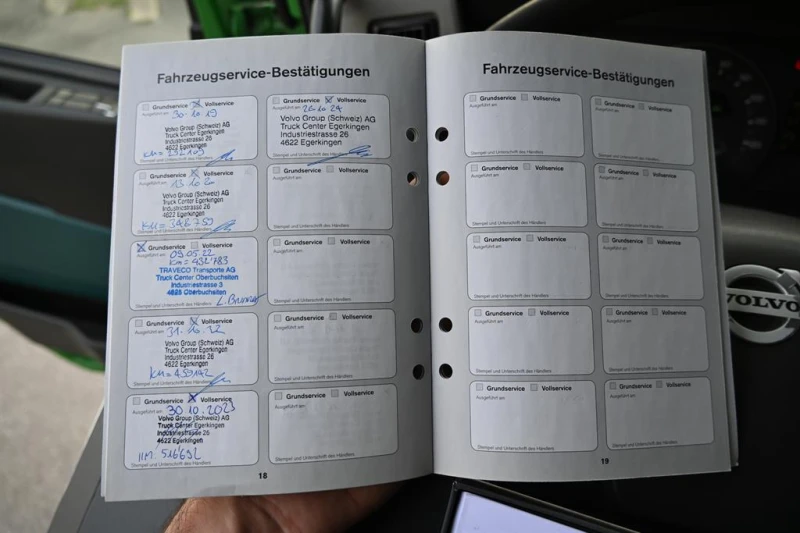 Fahrzeugservice-Bestätigungen
Grundservice Vollservice
Ausgeführt am 30.10.19
Volvo Group (Schweiz) AG
Truck Center Egerkingen
Industriestrasse 26
4622 Egerkingen
Stempel und Unterschrift des Händlers
Grundservice Vollservice
Ausgeführt am 13.10.20
Volvo Group (Schweiz) AG
Truck Center Egerkingen
Industriestrasse 26
4622 Egerkingen
KM= 346'759
Stempel und Unterschrift des Händlers
Grundservice Vollservice
Ausgeführt am 09.05.22
KM= 432'783
TRAVECO Transporte AG
Truck Center Oberbuchsiten
Industriestrasse 3
4625 Oberbuchsiten
Stempel und Unterschrift des Händlers
Grundservice Vollservice
Ausgeführt am 31.10.22
Volvo Group (Schweiz) AG
Truck Center Egerkingen
Industriestrasse 26
4622 Egerkingen
Stempel und Unterschrift des Händlers
Grundservice Vollservice
Ausgeführt am 30.10.2023
Volvo Group (Schweiz) AG
Truck Center Egerkingen
Industriestrasse 26
4622 Egerkingen
Stempel und Unterschrift des Händlers
Grundservice Vollservice
Ausgeführt am 26.10.24
Volvo Group (Schweiz) AG
Truck Center Egerkingen
Industriestrasse 26
4622 Egerkingen
Stempel und Unterschrift des Händlers
Grundservice Vollservice
Ausgeführt am
Stempel und Unterschrift des Händlers
Grundservice Vollservice
Ausgeführt am
Stempel und Unterschrift des Händlers
Grundservice Vollservice
Ausgeführt am
Stempel und Unterschrift des Händlers
Grundservice Vollservice
Ausgeführt am
Stempel und Unterschrift des Händlers
18
Fahrzeugservice-Bestätigungen
Grundservice Vollservice
Ausgeführt am
Stempel und Unterschrift des Händlers
Grundservice Vollservice
Ausgeführt am
Stempel und Unterschrift des Händlers
Grundservice Vollservice
Ausgeführt am
Stempel und Unterschrift des Händlers
Grundservice Vollservice
Ausgeführt am
Stempel und Unterschrift des Händlers
Grundservice Vollservice
Ausgeführt am
Stempel und Unterschrift des Händlers
Grundservice Vollservice
Ausgeführt am
Stempel und Unterschrift des Händlers
Grundservice Vollservice
Ausgeführt am
Stempel und Unterschrift des Händlers
Grundservice Vollservice
Ausgeführt am
Stempel und Unterschrift des Händlers
Grundservice Vollservice
Ausgeführt am
Stempel und Unterschrift des Händlers
Grundservice Vollservice
Ausgeführt am
Stempel und Unterschrift des Händlers
19
VOLVO